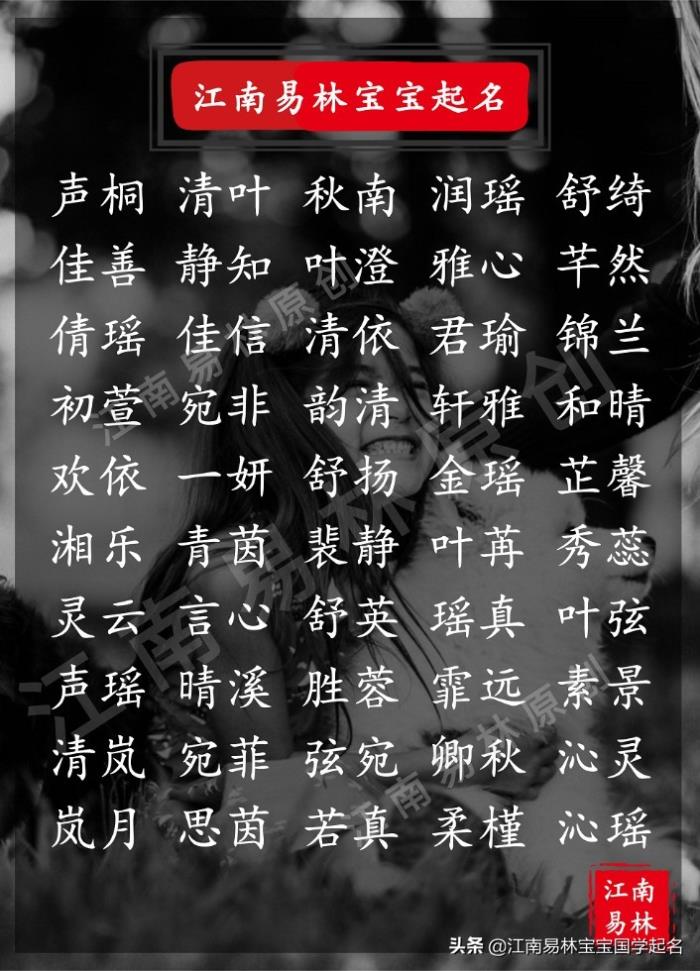 江南易林宝宝起名
声桐 清叶 秋南 润瑶 舒绮
佳善 静知 叶澄 雅心 芊然
倩瑶 佳信 清依 君瑜 锦兰
初萱 宛非 韵清 轩雅 和晴
欢依 一妍 舒扬 金瑶 芷馨
湘乐 青茵 裴静 叶苒 秀蕊
灵云 言心 舒英 瑶真 叶弦
声瑶 晴溪 胜蓉 霏远 素景
清岚 宛菲 弦宛 卿秋 沁灵
岚月 思茵 若真 柔槿 沁瑶
江南易林原创
江南易林原创
江南易林原创
江南
易林
头条 @江南易林宝宝国学起名